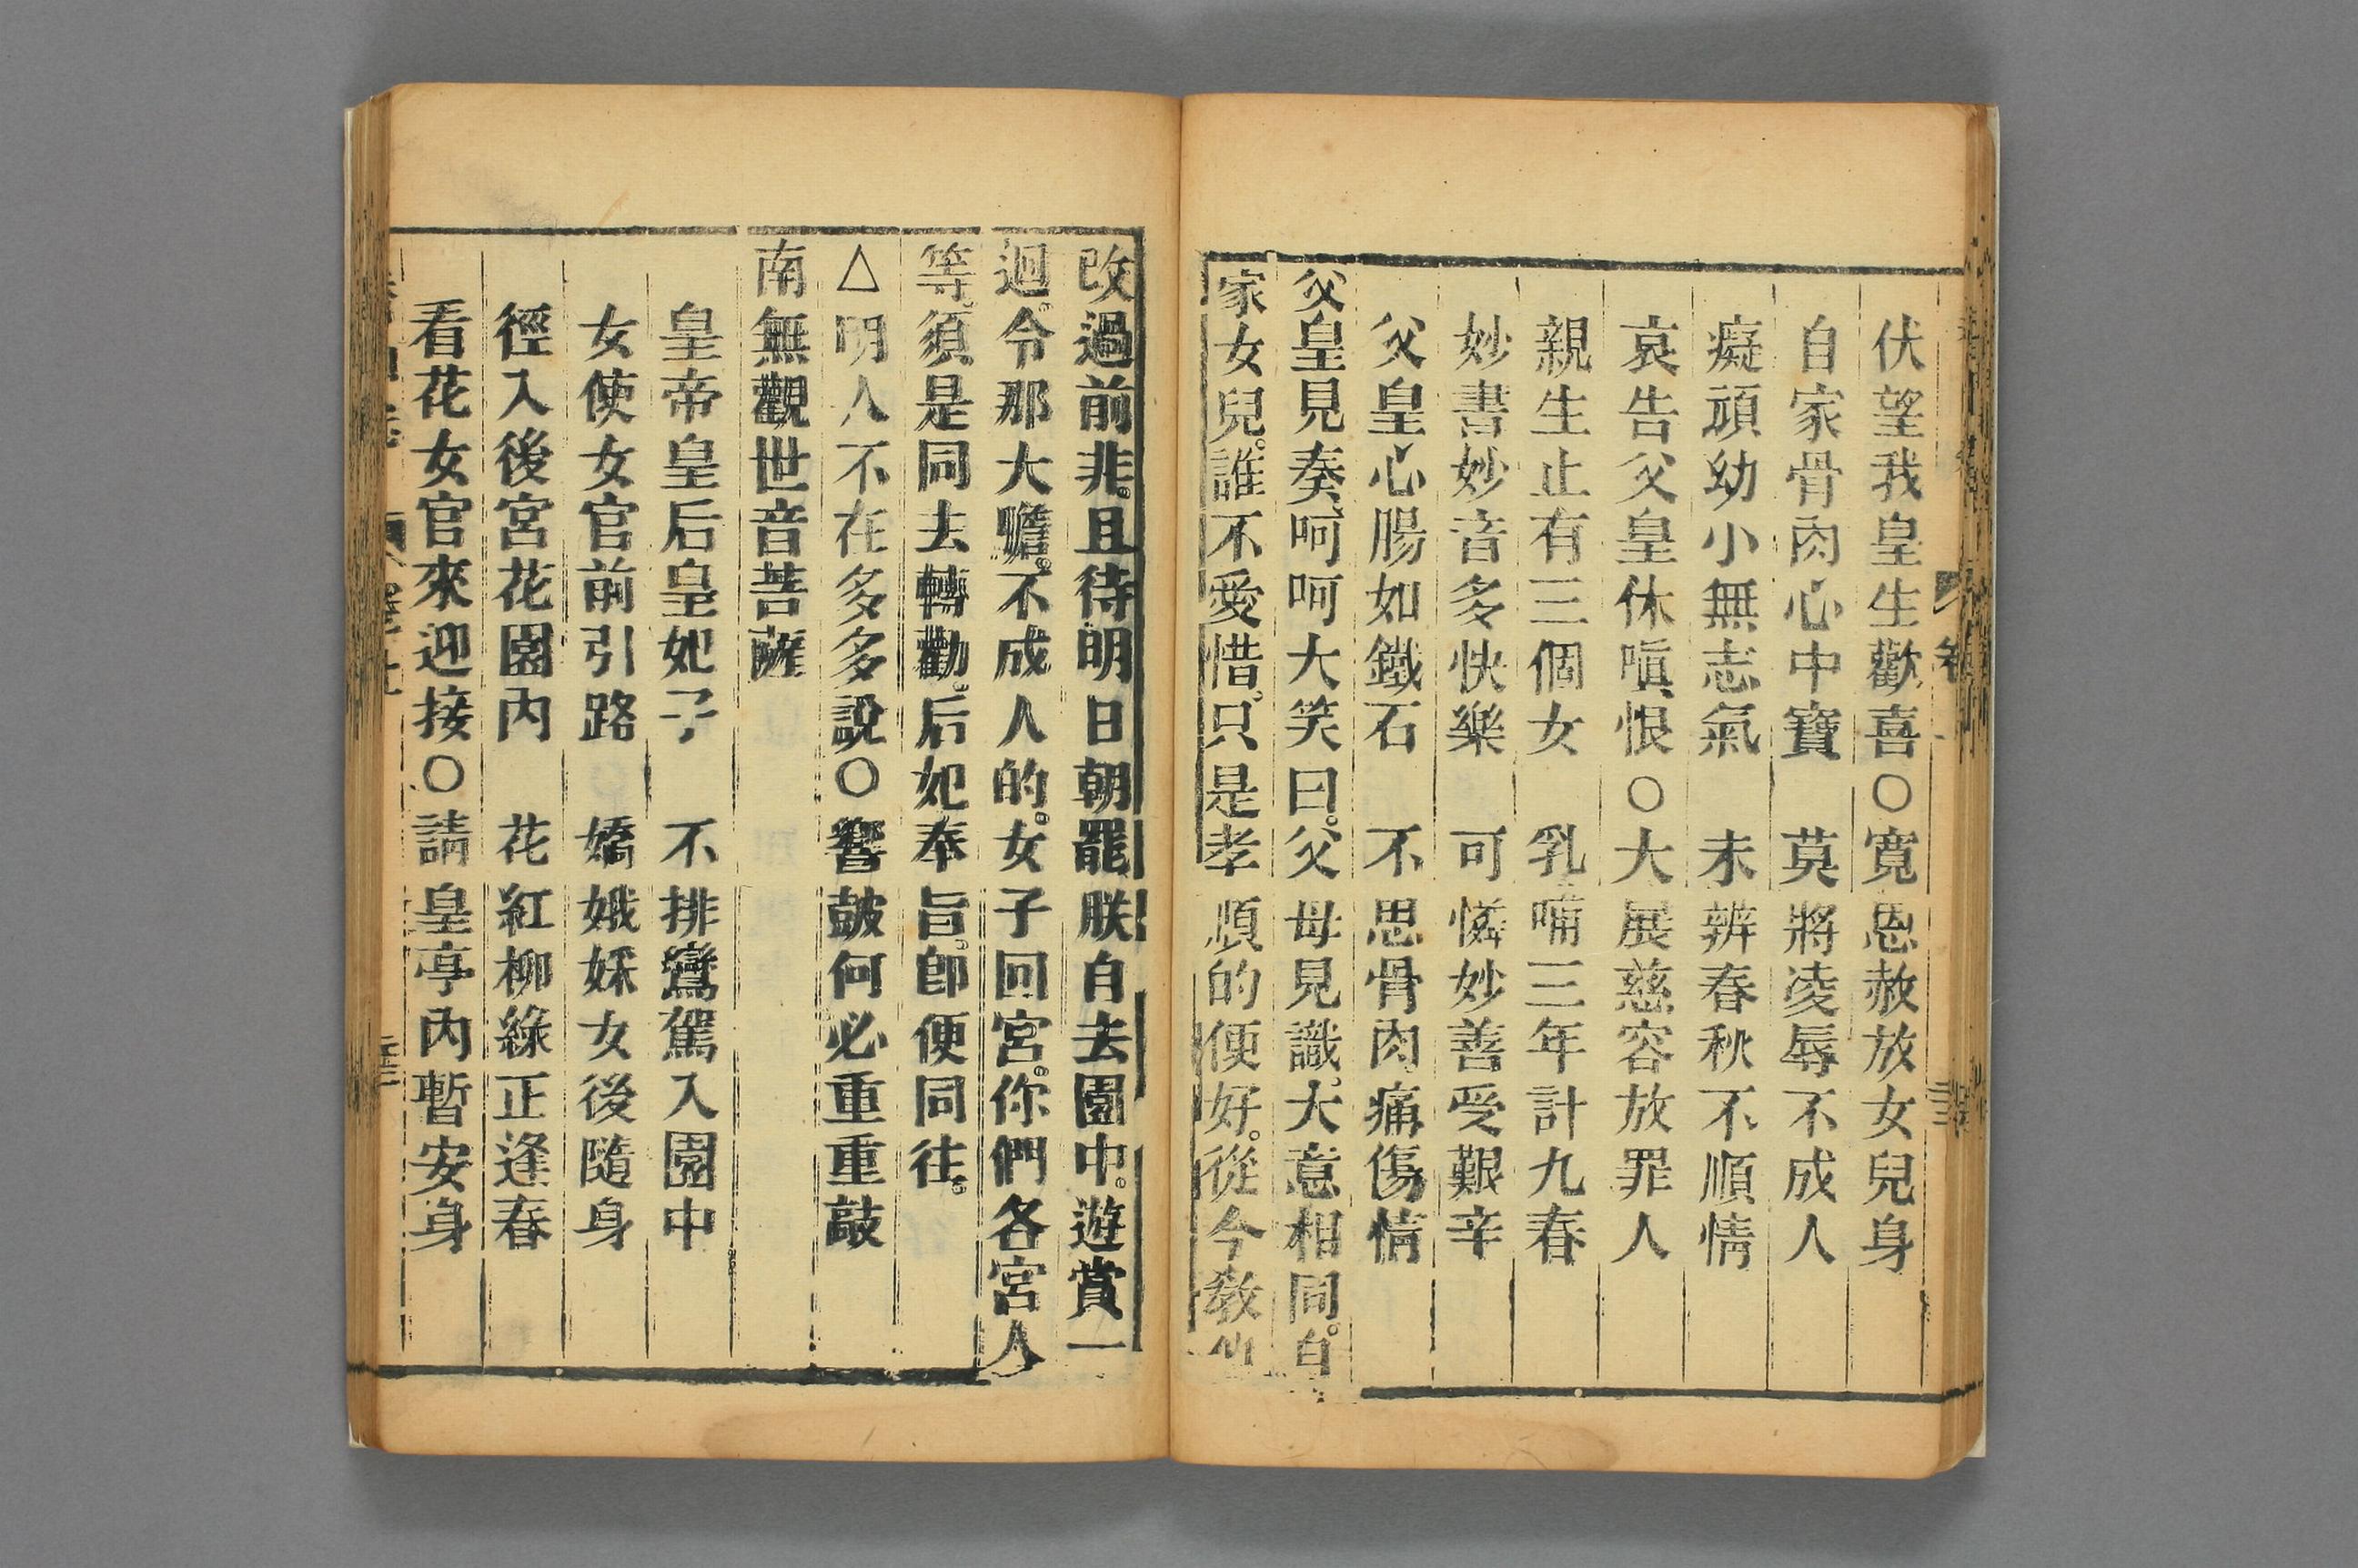 伏望我皇生歡喜〇寬恩赦放女兒身
自家骨肉心中寶　莫將凌辱不成人
癡頑幼小無志氣　未辨春秋不順情
哀告父皇休嗔恨〇大展慈容放罪人
親生止有三個女　乳哺三年計九春
妙書妙音多快樂　可憐妙善受艱辛
父皇心腸如鐵石　不思骨肉痛傷情
父皇見奏、呵呵大笑曰。父母見識。大意相同。自
家女兒。誰不愛惜。只是孝順的便好。從今教
改過前非。且待明日朝罷朕自去園中。遊賞一
迴。令那大膽。不成人的。女子回宮。你們各宮人
等。須是同去轉勸。后妃奉旨。卽便同往。
△明人不在多多說〇響皷何必重重敲
南無觀世音菩薩
皇帝皇后皇妃子　不排鸞駕入園中
女使女官前引路　嬌娥婇女後隨身
徑入後宮花園內　花紅柳綠正逢春
看花女官來迎接〇請皇亭內暫安身